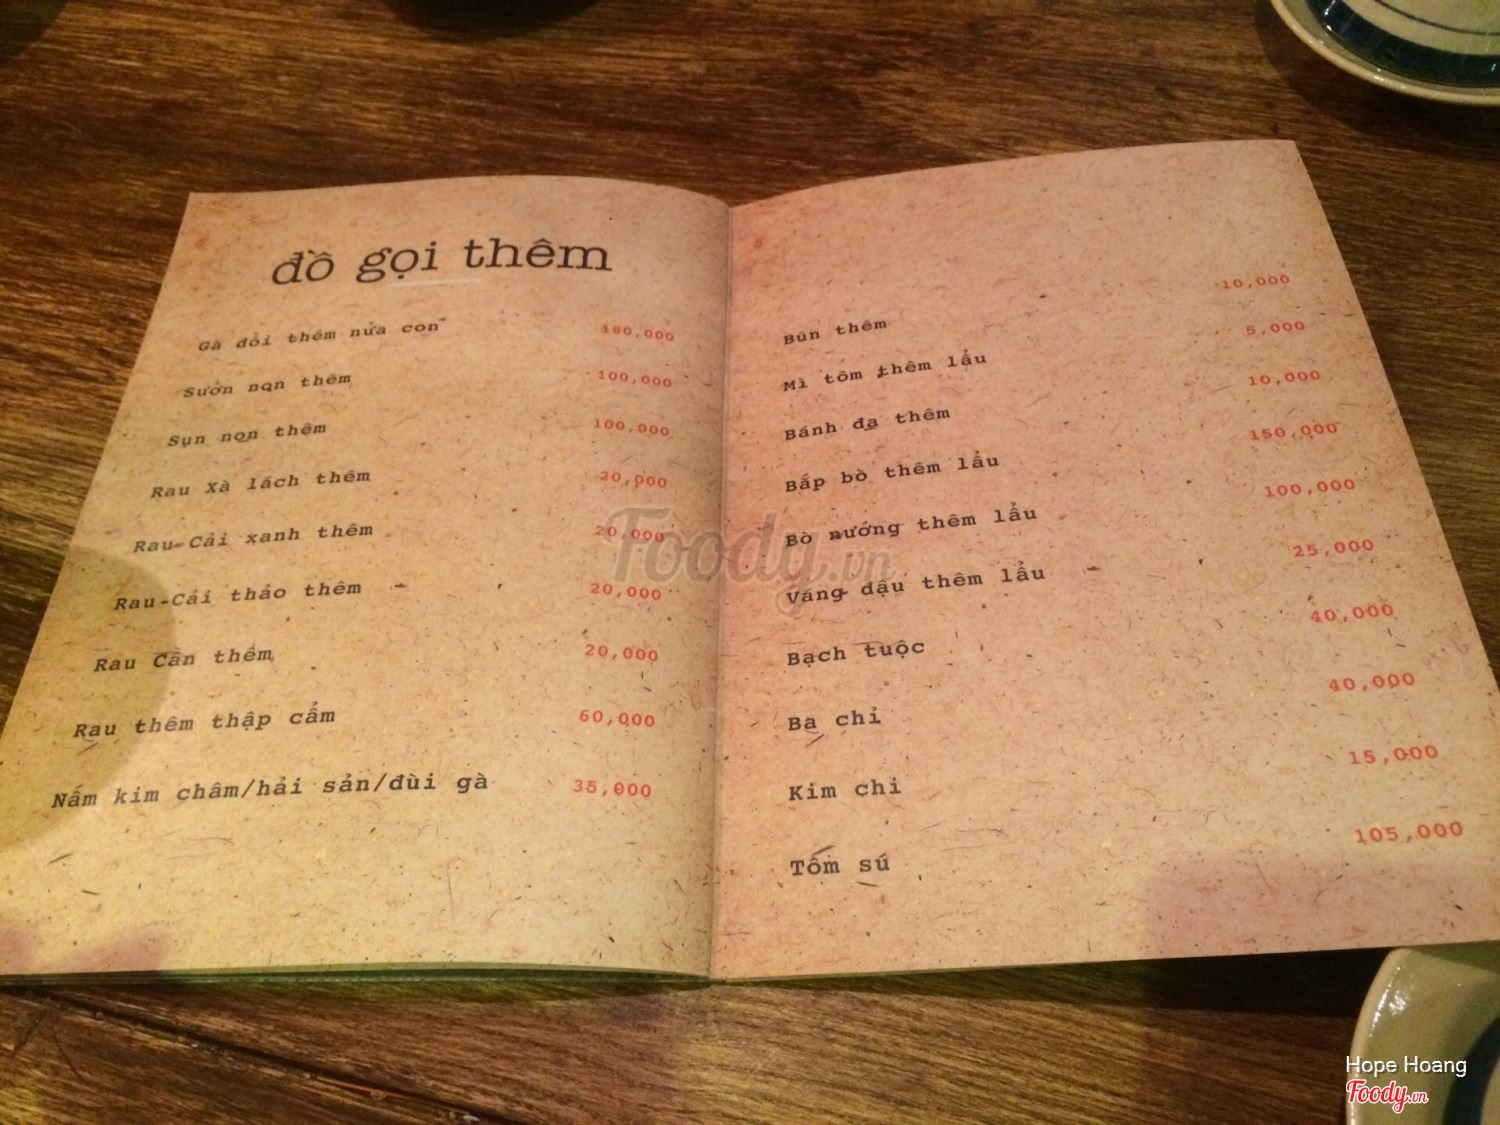 đồ gọi thêm
Gà đồi thêm nửa con 180,000
Sườn non thêm 100,000
Sụn non thêm 100,000
Rau Xà lách thêm 20,000
Rau Cải xanh thêm 20,000
Rau Cải thảo thêm 20,000
Rau Cần thêm 20,000
Rau thêm thập cẩm 60,000
Nấm kim châm/hải sản/đùi gà 35,000
Bún thêm 10,000
Mì tôm thêm lẩu 5,000
Bánh đa thêm 10,000
Bắp bò thêm lẩu 150,000
Bò nướng thêm lẩu 100,000
Váng đậu thêm lẩu 25,000
Bạch tuộc 40,000
Ba chỉ 40,000
Kim chi 15,000
Tôm sú 105,000
Foody.vn
Hope Hoang
Foody.vn